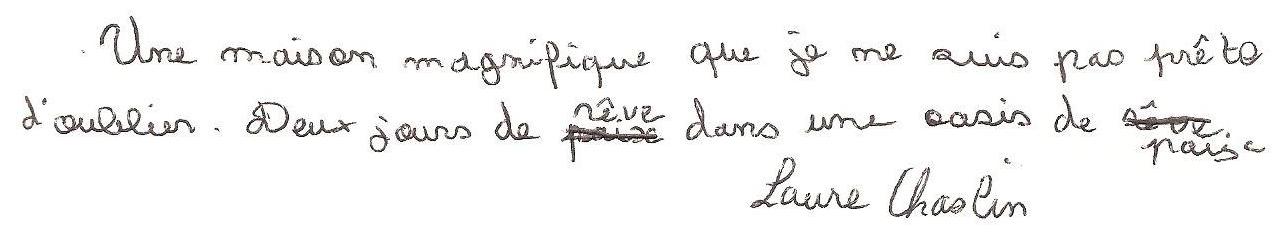 Une maison magnifique que je ne suis pas prête
d'oublier. Deux jours de rêve dans une oasis de paise
Laure Chaslin